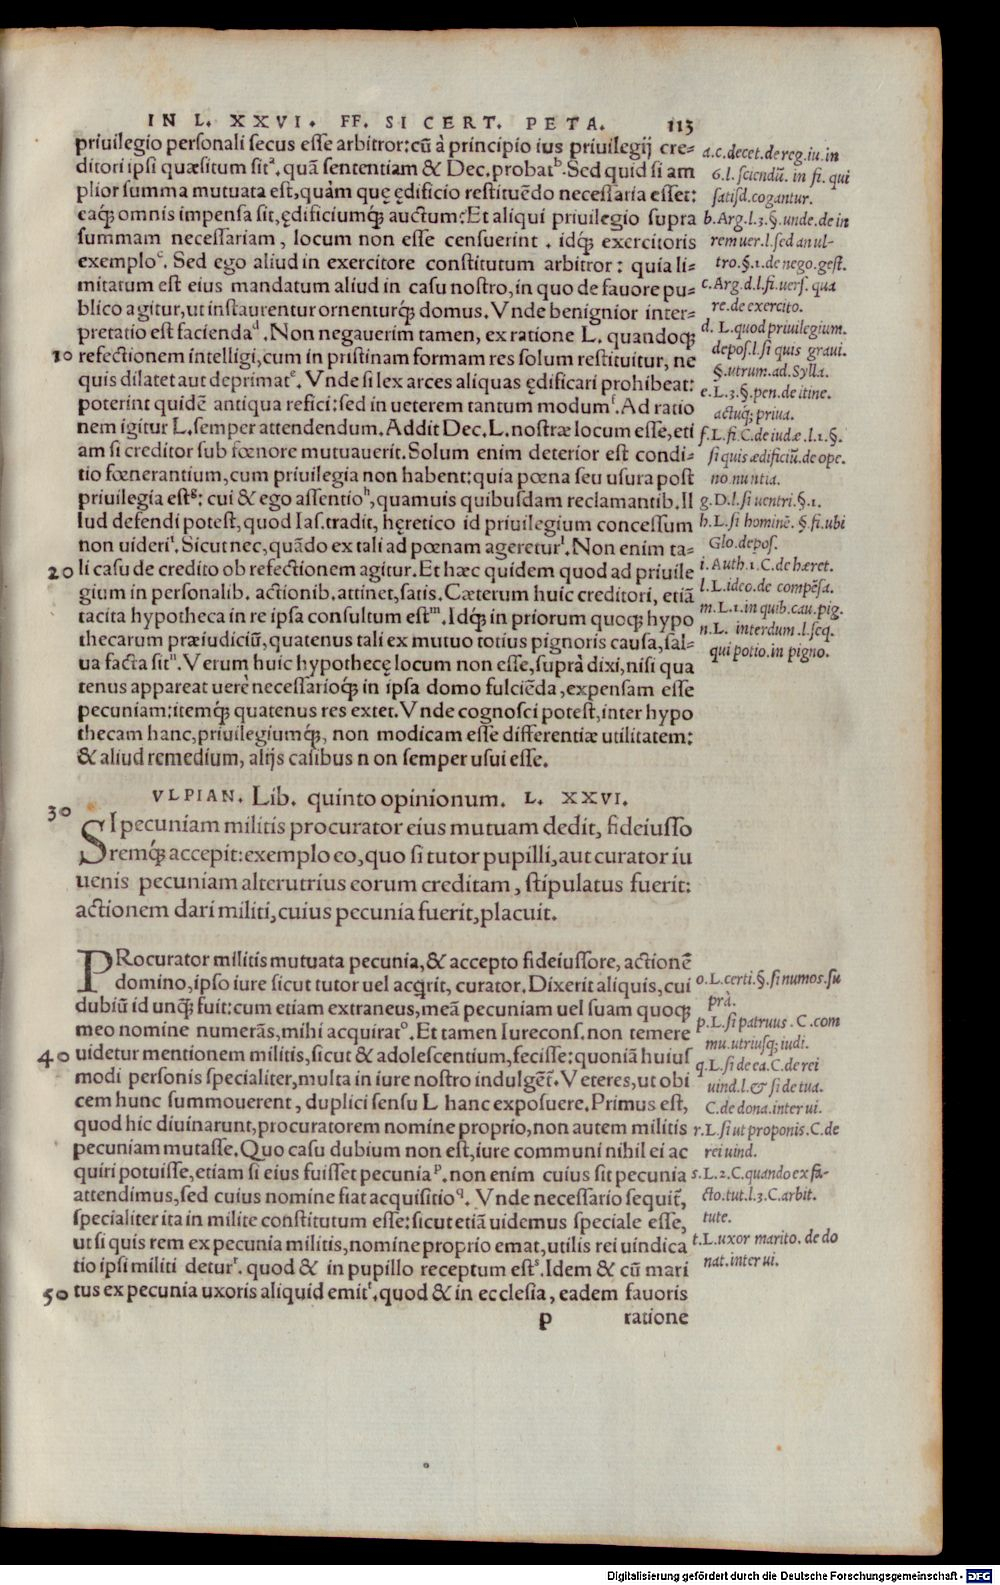 IN L. XXVI. FF. SI CERT. PETA. 113
priuilegio personali secus esse arbitror: cũ à principio ius priuilegij cre-
ditori ipsi quæsitum sitᵃ. quã sententiam & Dec. probatᵇ. Sed quid si am
plior summa mutuata est, quàm quę ędificio restituẽdo necessaria esset:
eaq́ꝫ omnis impensa sit, ędificiumq́ꝫ auctum: Et aliqui priuilegio supra
summam necessariam, locum non esse censuerint. idq́ꝫ exercitoris
exemploᶜ. Sed ego aliud in exercitore constitutum arbitror: quia li-
mitatum est eius mandatum aliud in casu nostro, in quo de fauore pu-
blico agitur, ut instaurentur ornenturq́ꝫ domus. Vnde benignior inter-
pretatio est faciendaᵈ. Non negauerim tamen, ex ratione L. quandoq́ꝫ
10 refectionem intelligi, cum in pristinam formam res solum restituitur, ne
quis dilatet aut deprimatᵉ. Vnde si lex arces aliquas ędificari prohibeat:
poterint quidẽ antiqua refici: sed in ueterem tantum modumᶠ. Ad ratio
nem igitur L. semper attendendum. Addit Dec. L. nostræ locum esse, eti
am si creditor sub fœnore mutuauerit. Solum enim deterior est condi-
tio fœnerantium, cum priuilegia non habent: quia pœna seu usura post
priuilegia estᵍ: cui & ego assentioʰ, quamuis quibusdam reclamantib. Il
lud defendi potest, quod Ias. tradit, hęretico id priuilegium concessum
non uideriⁱ. Sicut nec, quãdo ex tali ad pœnam agereturˡ. Non enim ta-
20 li casu de credito ob refectionem agitur. Et hæc quidem quod ad priuile
gium in personalib. actionib. attinet, satis. Cæterum huic creditori, etiã
tacita hypotheca in re ipsa consultum estᵐ. Idq́ꝫ in priorum quoq́ꝫ hypo
thecarum præiudiciũ, quatenus tali ex mutuo totius pignoris causa, sal-
ua facta sitⁿ. Verum huic hypothecę locum non esse, suprà dixi, nisi qua
tenus appareat uerè necessarioq́ꝫ in ipsa domo fulciẽda, expensam esse
pecuniam: itemq́ꝫ quatenus res extet. Vnde cognosci potest, inter hypo
thecam hanc, priuilegiumq́ꝫ, non modicam esse differentiæ utilitatem:
& aliud remedium, alijs casibus n on semper usui esse.
a. c. decet. de reg. iu. in
6. l. sciendũ. in fi. qui
satisd. cogantur.
b. Arg. l. 3. §. unde. de in
rem uer. l. sed an ul-
tro. §. 1. de nego. gest.
c. Arg. d. l. fi. uers. qua
re. de exercito.
d. L. quod priuilegium.
depos. l. si quis graui.
§. utrum. ad. Sylla.
e. L. 3. §. pen. de itine.
actuq́ꝫ priua.
f. L. fi. C. de iudæ. l. 1. §.
si quis ædificiũ. de ope.
no. nuntia.
g. D. l. si uentri. §. 1.
h. L. si hominẽ. §. fi. ubi
Glo. depos.
i. Auth. 1. C. de hæret.
l. L. ideo. de compẽsa.
m. L. 1. in quib. cau. pig.
n. L. interdum. l. seq.
qui potio. in pigno.
VLPIAN. Lib. quinto opinionum. L. XXVI.
30
SI pecuniam militis procurator eius mutuam dedit, fideiusso
remq́ꝫ accepit: exemplo eo, quo si tutor pupilli, aut curator iu
uenis pecuniam alterutrius eorum creditam, stipulatus fuerit:
actionem dari militi, cuius pecunia fuerit, placuit.
PRocurator militis mutuata pecunia, & accepto fideiussore, actionẽ
domino, ipso iure sicut tutor uel acq̃rit, curator. Dixerit aliquis, cui
dubiũ id unq̃ꝫ fuit: cum etiam extraneus, meã pecuniam uel suam quoq́ꝫ
meo nomine numerãs, mihi acquiratᵒ. Et tamen Iurecons. non temere
40 uidetur mentionem militis, sicut & adolescentium, fecisse: quoniã huius
modi personis specialiter, multa in iure nostro indulgẽt̃. Veteres, ut obi
cem hunc summouerent, duplici sensu L hanc exposuere. Primus est,
quod hic diuinarunt, procuratorem nomine proprio, non autem militis
pecuniam mutasse. Quo casu dubium non est, iure communi nihil ei ac
quiri potuisse, etiam si eius fuisset pecuniaᵖ. non enim cuius sit pecunia
attendimus, sed cuius nomine fiat acquisitio𐞥. Vnde necessario sequit̃,
specialiter ita in milite constitutum esse: sicut etiã uidemus speciale esse,
ut si quis rem ex pecunia militis, nomine proprio emat, utilis rei uindica
tio ipsi militi deturʳ. quod & in pupillo receptum estˢ. Idem & cũ mari
50 tus ex pecunia uxoris aliquid emitᵗ. quod & in ecclesia, eadem fauoris
o. L. certi. §. si numos. su
prà.
p. L. si patruus. C. com
mu. utriusq́ꝫ iudi.
q. L. si de ea. C. de rei
uind. l. & si de tua.
C. de dona. inter ui.
r. L. si ut proponis. C. de
rei uind.
s. L. 2. C. quando ex fa-
cto. tut. l. 3. C. arbit.
tute.
t. L. uxor marito. de do
nat. inter ui.
p ratione
Digitalisierung gefördert durch die Deutsche Forschungsgemeinschaft - DFG